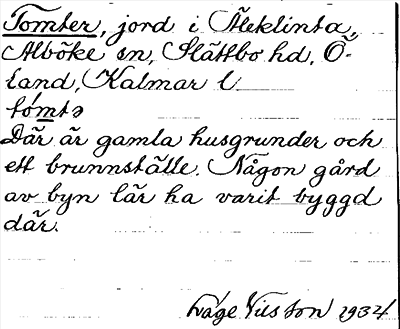 Tomter, jord i Äleklinta,
Alböke sn, Slättbo hd, Ö-
land, Kalmar l
tómtə
Där är gamla husgrunder och
ett brunnställe. Någon gård
av byn lär ha varit byggd
där.
Åge Nilsson 1934